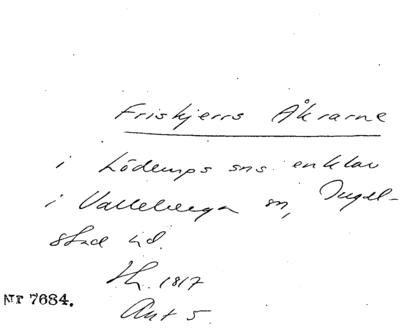 Friskjerrs Åkrarne
i Löderups sns enklav
i Valleberga sn, Ingel-
stad hd.
Sk. 1817
Akt 5
Nr 7684.